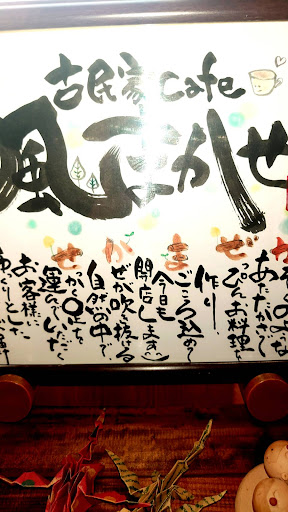 古民家 Cafe
風まかせ
かぞくのような
あたたかさで
ぜっぴんお料理を
作り
まごころ込めて
今日も
開店します
かぜが吹き抜ける
自然の中で
せっかく足を
運んでいただく
お客様に
ゆっくりとした